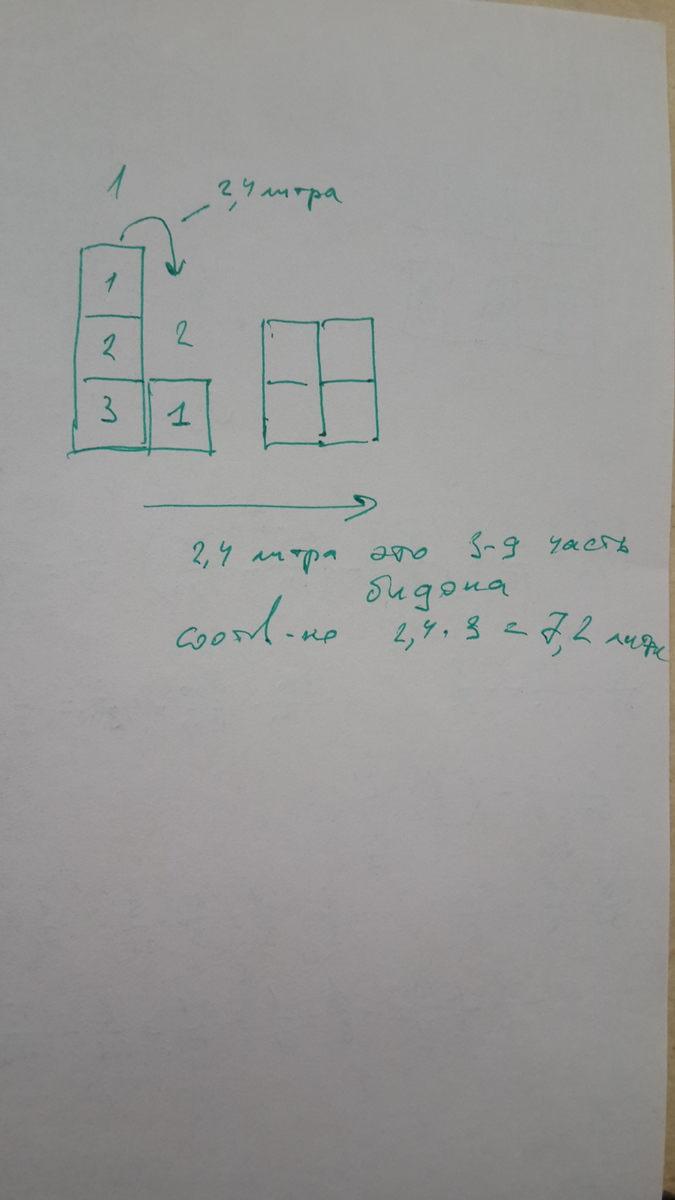 1
2,4 литра
1
2
2
3
1
2,4 литра это 3-я часть
бидона
соотв-но 2,4·3 = 7,2 литра